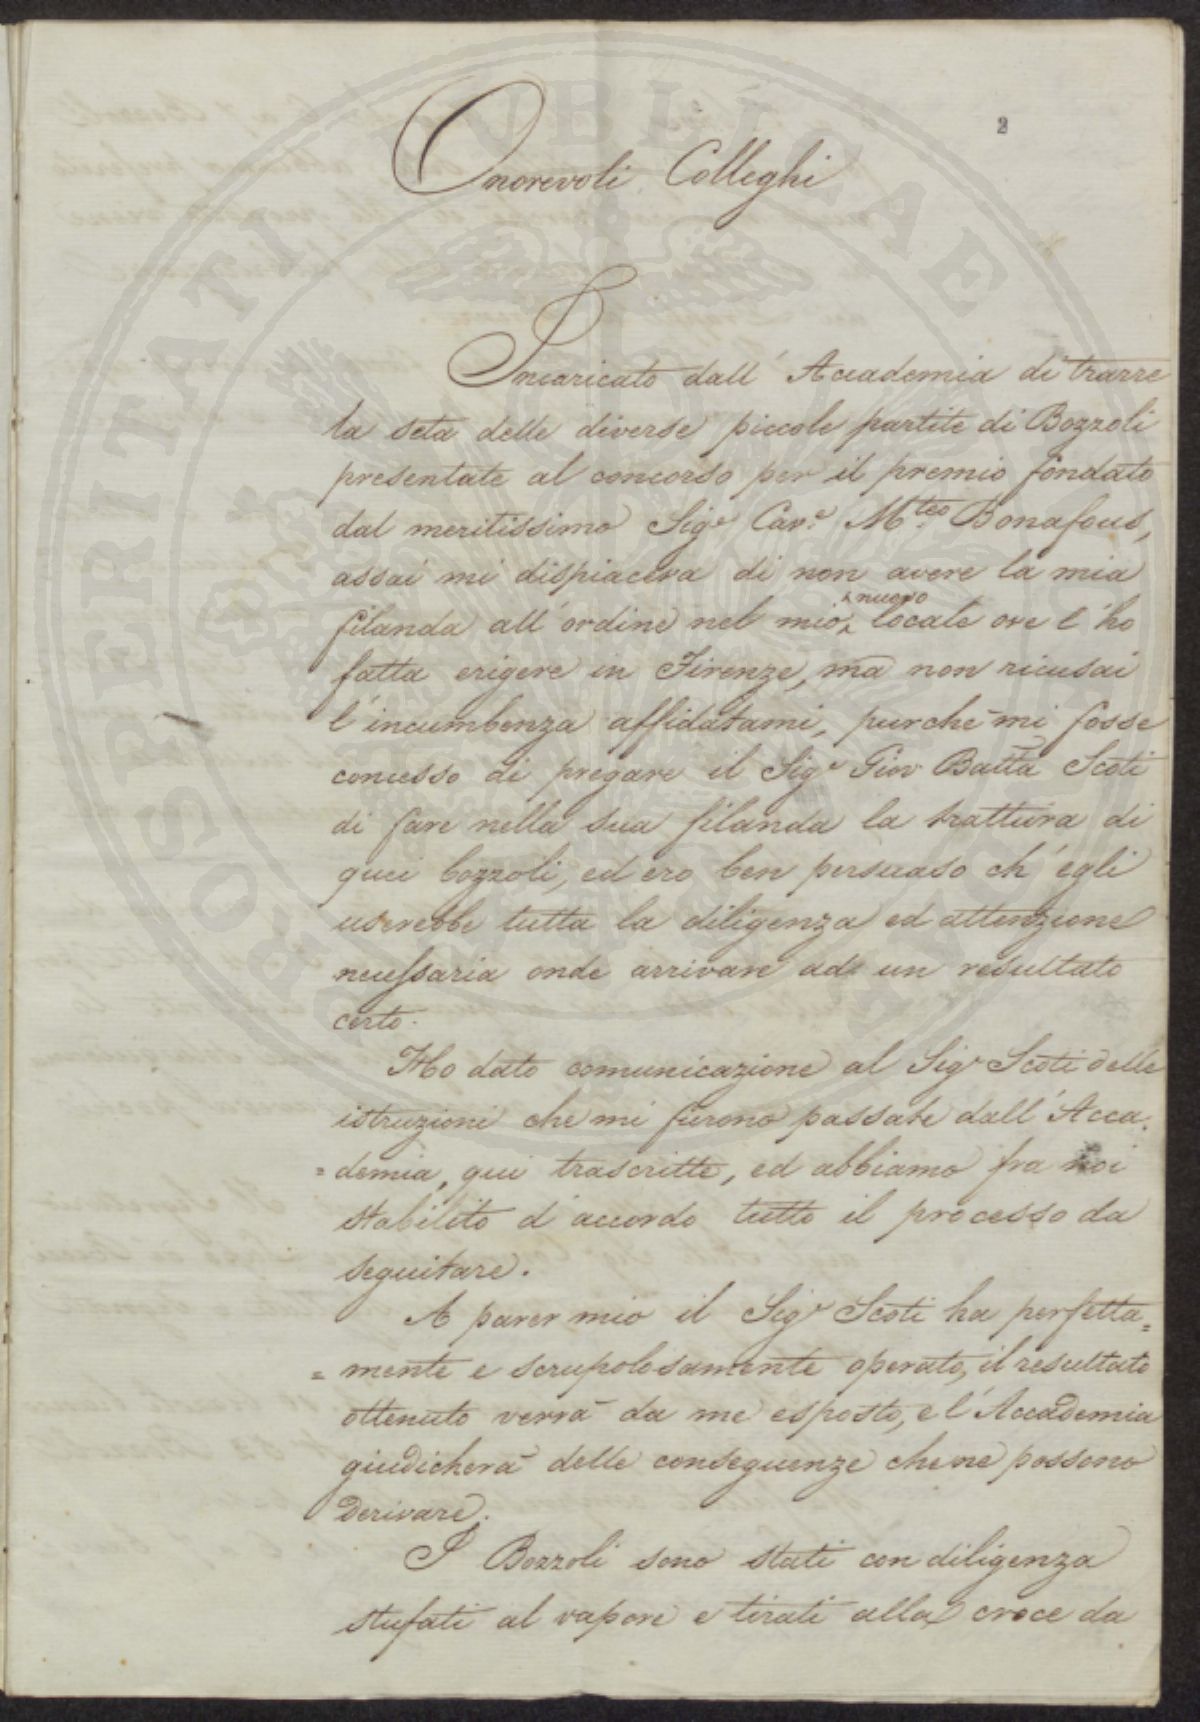 2
Onorevoli Colleghi
Incaricato dall' Accademia di trarre
la seta delle diverse piccole partite di Bozzoli
presentate al concorso per il premio fondato
dal meritissimo Sigr Cavr Mteo Bonafous,
assai mi dispiaceva di non avere la mia
filanda all' ordine nel mio nuovo locale ove l' ho
fatta erigere in Firenze, ma non ricusai
l' incumbenza affidatami, purchè mi fosse
concesso di pregare il Sigr Giov Batta Scoti
di fare nella sua filanda la trattura di
quei bozzoli, ed ero ben persuaso ch' egli
userebbe tutta la diligenza ed attenzione
necessaria onde arrivare ad un resultato
certo.
Ho dato comunicazione al Sigr Scoti delle
istruzioni che mi furono passate dall' Acca.
=demia, qui trascritte, ed abbiamo fra noi
stabilito d' accordo tutto il processo da
seguitare.
A parer mio il Sigr Scoti ha perfetta=
=mente e scrupolosamente operato, il resultato
ottenuto verrà da me esposto, e l' Accademia
giudicherà delle conseguenze che ne possono
derivare.
I Bozzoli sono stati con diligenza
stufati al vapore e tirati alla croce da
PROSPERITATI PUBLICAE